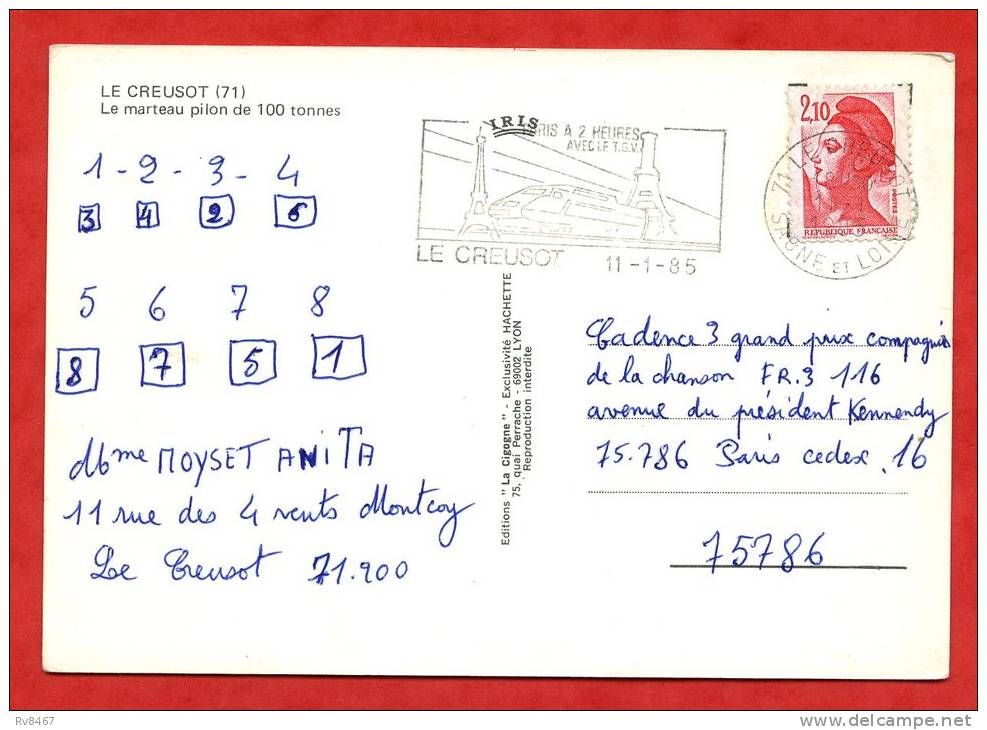 LE CREUSOT (71)
Le marteau pilon de 100 tonnes
1 - 2 - 3 - 4
3 4 2 6
5 6 7 8
8 7 5 1
Mme MOYSET ANITA
11 rue des 4 vents Montcoy
Le Creusot 71.200
IRIS
PARIS A 2 HEURES
AVEC LE T.G.V.
LE CREUSOT 11-1-85
Editions "La Cigogne" - Exclusivité HACHETTE
75, quai Perrache - 69002 LYON
Reproduction interdite
2,10
POSTES
REPUBLIQUE FRANÇAISE
71 LE CREUSOT
SAONE ET LOIRE
Cadence 3 grand prix compagnie
de la chanson FR.3 116
avenue du président Kennendy
75.786 Paris cedex 16
75786
Rv8467
delcampe.net